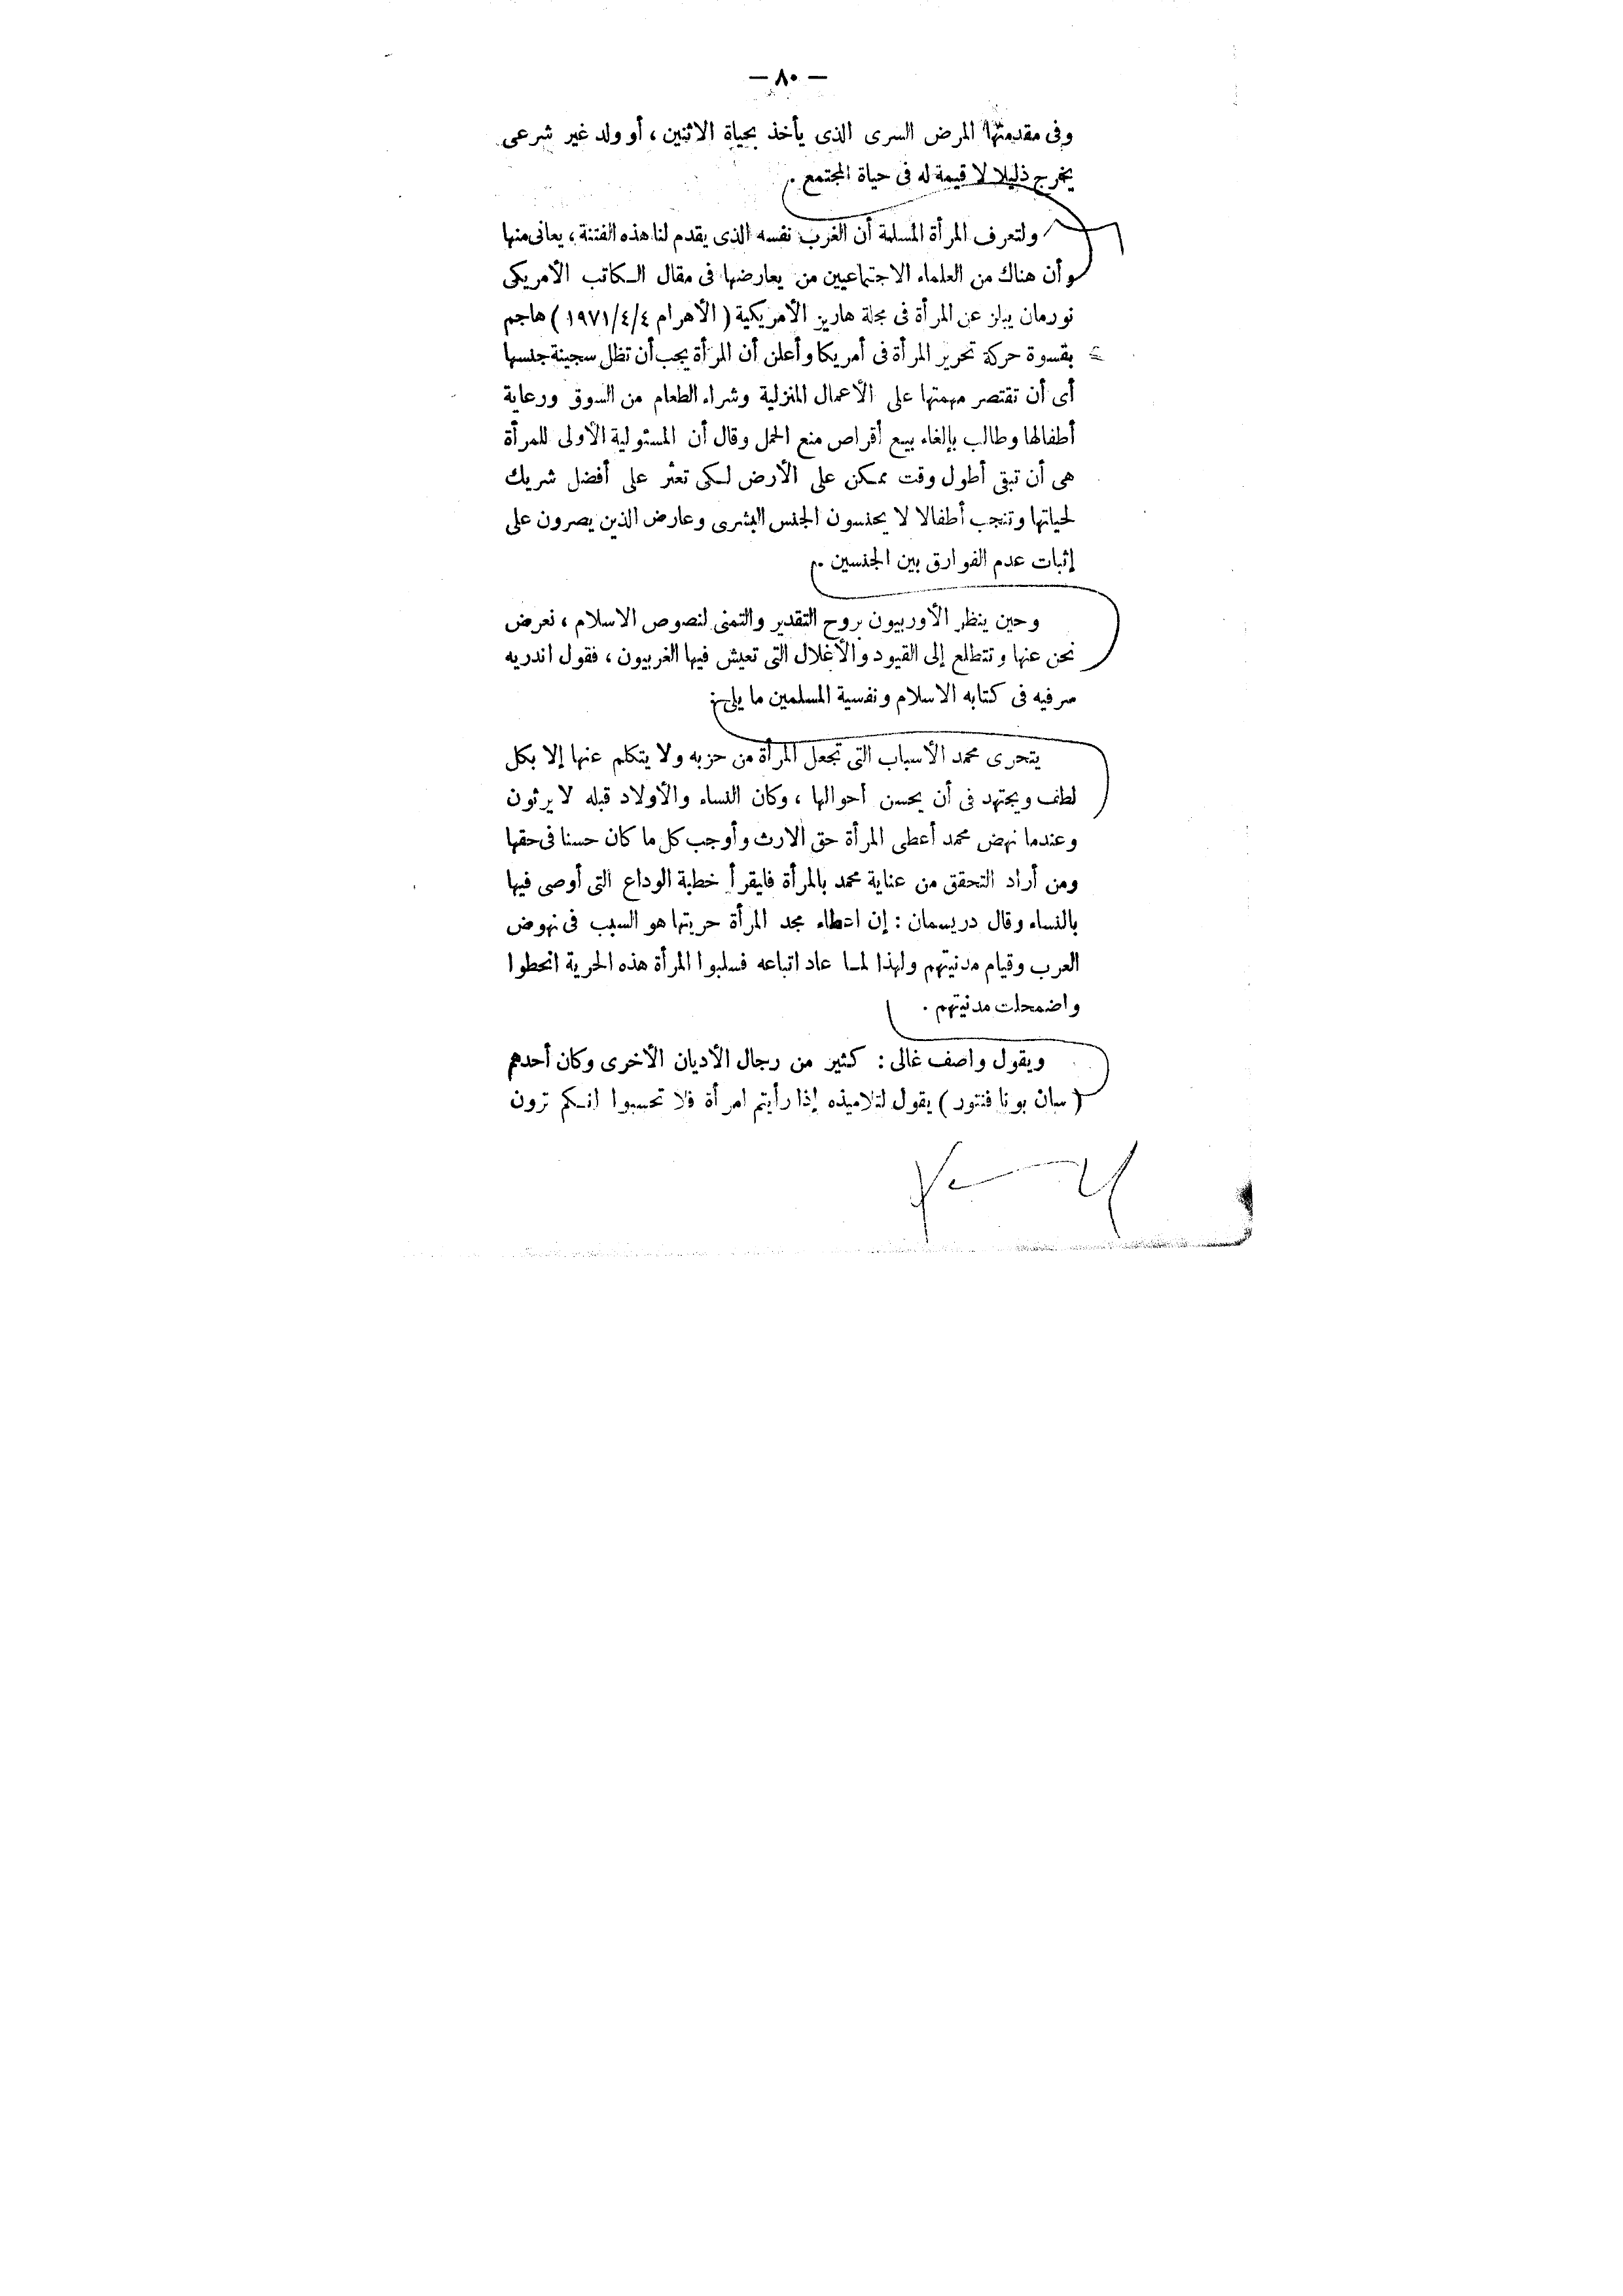 — ٨٠ —
وفى مقدمتها المرض السرى الذى يأخذ بحياة الاثنين ، أو ولد غير شرعى
يخرج ذليلا لا قيمة له فى حياة المجتمع .
ولتعرف المرأة المسلمة أن الغرب نفسه الذى يقدم لنا هذه الفتنة ، يعانى منها
وأن هناك من العلماء الاجتماعيين من يعارضها فى مقال الكاتب الأمريكى
نورمان يبلز عن المرأة فى مجلة هاريز الأمريكية ( الأهرام ١٩٧١/٤/٤ ) هاجم
بقسوة حركة تحرير المرأة فى أمريكا وأعلن أن المرأة يجب أن تظل سجينة جنسها
أى أن تقتصر مهمتها على الأعمال المنزلية وشراء الطعام من السوق ورعاية
أطفالها وطالب بإلغاء بيع أقراص منع الحمل وقال أن المسئولية الأولى للمرأة
هى أن تبقى أطول وقت ممكن على الأرض لكى تعثر على أفضل شريك
لحياتها وتنجب أطفالا لا يحنسون الجنس البشرى وعارض الذين يصرون على
إثبات عدم الفوارق بين الجنسين .
وحين ينظر الأوربيون بروح التقدير والتمنى لنصوص الاسلام ، نعرض
نحن عنها وتتطلع إلى القيود والأغلال التى تعيش فيها الغربيون ، فقول اندريه
سرفيه فى كتابه الاسلام ونفسية المسلمين ما يلى :
يتحرى محمد الأسباب التى تجعل المرأة من حزبه ولا يتكلم عنها إلا بكل
لطف ويجتهد فى أن يحسن أحوالها ، وكان النساء والأولاد قبله لا يرثون
وعندما نهض محمد أعطى المرأة حق الارث وأوجب كل ما كان حسنا فى حقها
ومن أراد التحقق من عناية محمد بالمرأة فليقرأ خطبة الوداع التى أوصى فيها
بالنساء وقال دريسمان : إن اعطاء مجد المرأة حريتها هو السبب فى نهوض
العرب وقيام مدنيتهم ولهذا لما عاد اتباعه فسلبوا المرأة هذه الحرية انحطوا
واضمحلت مدنيتهم .
ويقول واصف غالى : كثير من رجال الأديان الأخرى وكان أحدهم
( سان بونا فنتور ) يقول لتلاميذه إذا رأيتم امرأة فلا تحسبوا انكم ترون